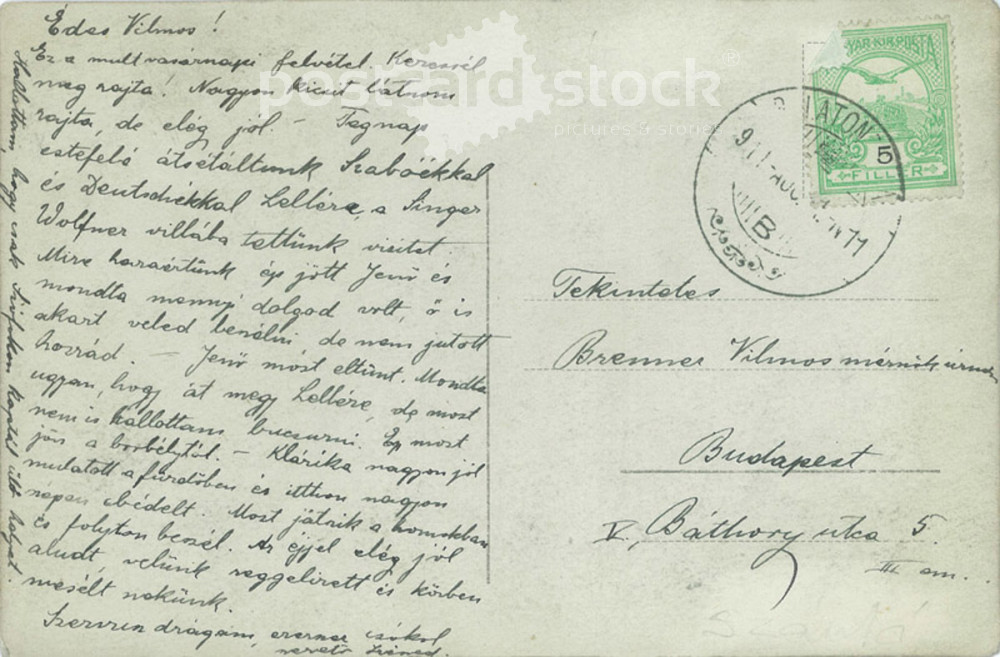 Édes Vilmos!
Ez a mult vasárnapi felvétel. Keressél
meg rajta! Nagyon kicsit látszom
rajta, de elég jól. – Tegnap
estefelé átsétáltunk Szabóékkal
és Deutschékkal Lellére, a Singer
Wolfner villába tettünk visitet.
Mire hazaértünk épp jött Jenő és
mondta mennyi dolgod volt, ő is
akart veled beszélni, de nem jutott
hozzád. – Jenő most eltünt. Mondta
ugyan, hogy át megy Lellére, de most
nem is hallottam bucsuzni. Ép most
jön a borbélytól. – Klárika nagyon jól
mulatott a fürdőben és itthon nagyon
szépen ebédelt. Most játszik a homokban
és folyton beszél. Az éjjel elég jól
aludt, velünk reggelizett és közben
mesélt nekünk.
Szervusz drágám, ezerszer csókol
szerető
Hallottam, hogy csak Siófokon kaptál ülő helyet.
postcard stock
pictures & stories
YAR·KIR·POSTA
5
FILLÉR
LATON
911 AUG
B
Tekintetes
Brenner Vilmos mérnök úrnak
Budapest
V. Báthory utca 5.
III em.